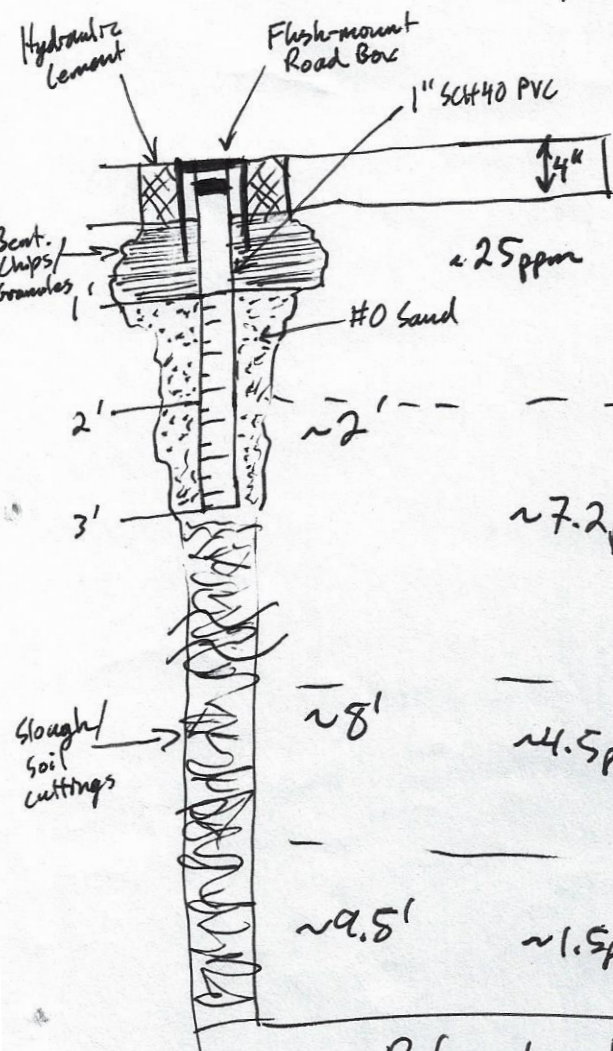 Hydraulic
Cement
Flush-mount
Road Box
1" SCH40 PVC
4"
Bent.
Chips/
Granules
~25ppm
1'
#0 Sand
2'
~2'
3'
~7.2
~8'
Slough/
Soil
cuttings
~4.5p
~9.5'
~1.5p